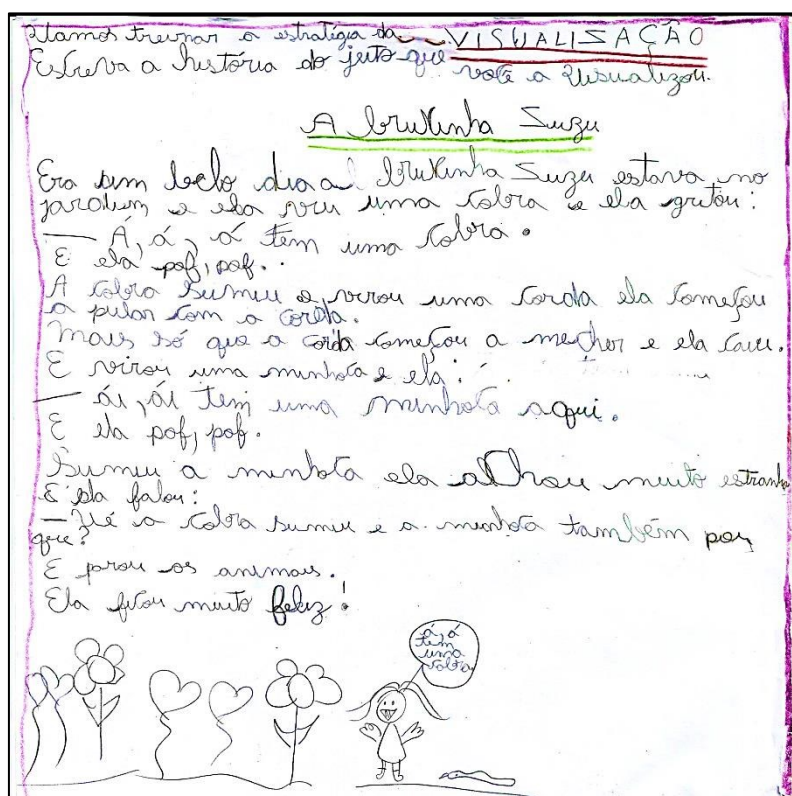 Vamos treinar a estratégia da VISUALIZAÇÃO
Escreva a história do jeito que você a visualizou.
A bruxinha Suzu
Era um belo dia a bruxinha Suzu estava no
jardim e ela viu uma cobra e ela gritou:
— Á, á, á tem uma cobra.
E ela pof, pof.
A cobra sumiu e virou uma corda ela começou
a pular com a corda.
Mais só que a corda começou a mecher e ela caiu.
E virou uma minhoca e ela:
— ái, ái tem uma minhoca aqui.
E ela pof, pof.
Sumiu a minhoca ela achou muito estranho
E ela falou:
— Ué a cobra sumiu e a minhoca também por
que?
E parou os animais.
Ela ficou muito feliz!
á, á
tem
uma
cobra